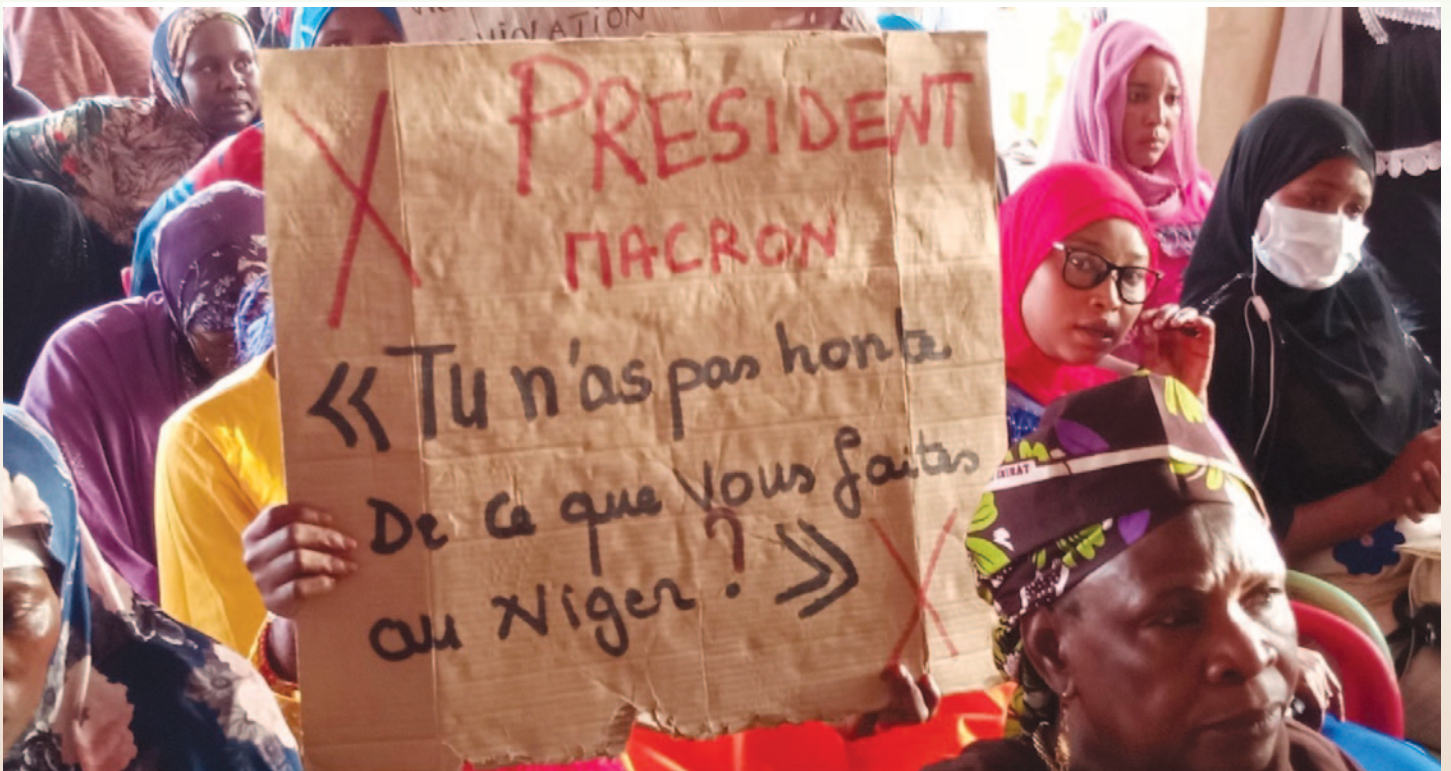 VIOLATION
PRESIDENT
MACRON
« Tu n'as pas honte
De ce que Vous faites
au Niger ? »